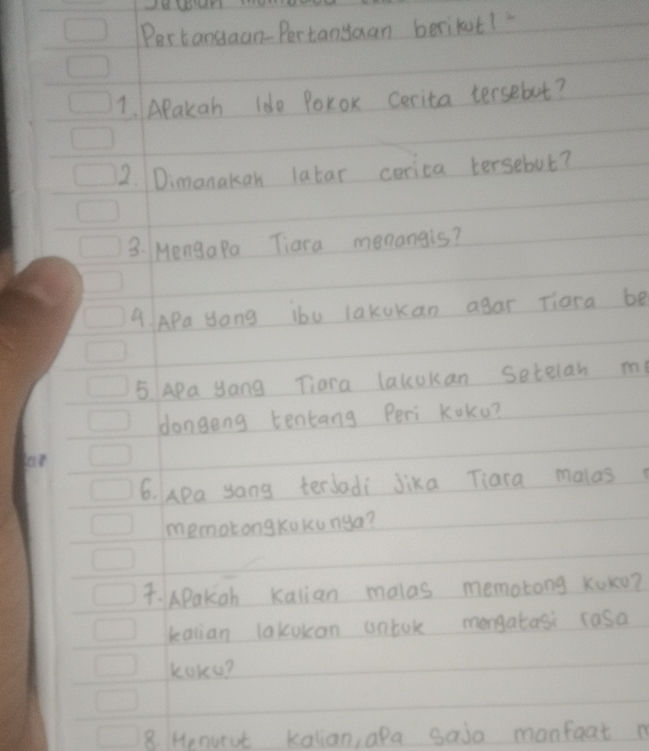 Pertanyaan-Pertanyaan berikut!
1. Apakah Ide Pokok Cerita tersebut?
2. Dimanakah latar cerita tersebut?
3. Mengapa Tiara menangis?
4. Apa yang ibu lakukan agar Tiara be
5. Apa yang Tiara lakukan Setelah me
dongeng tentang Peri Kuku?
6. Apa yang terjadi Jika Tiara malas
memotongkukunya?
7. Apakah Kalian malas memotong kuku?
kalian lakukan untuk mengatasi rasa
kuku?
8. Menurut kalian, apa saja manfaat m